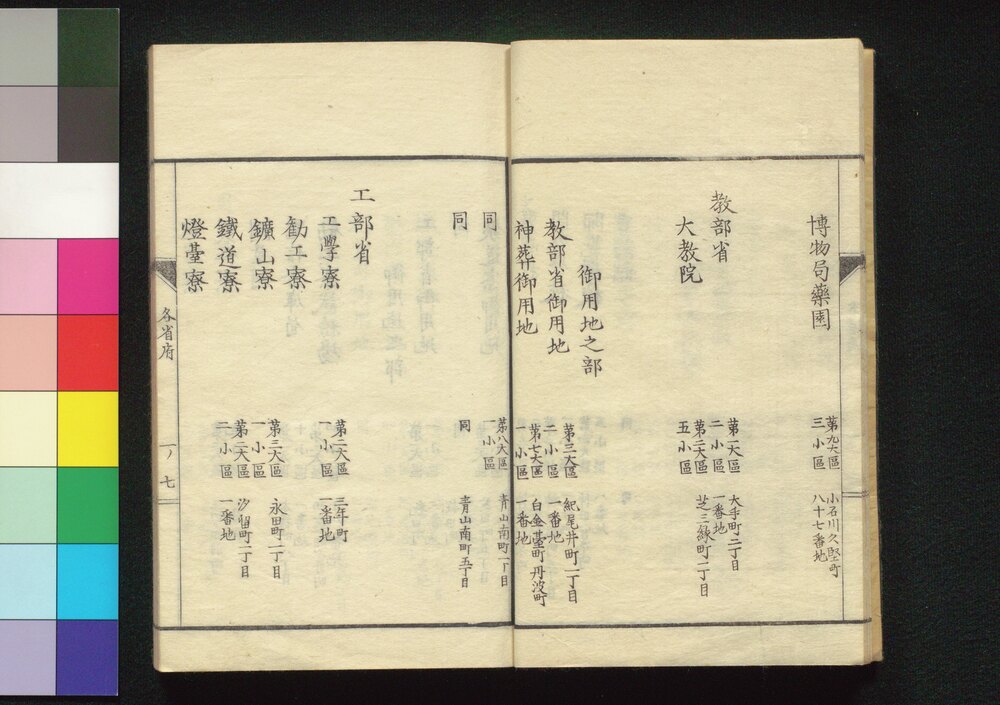 博物局藥園
第九大區
三小區
小石川久堅町
八十七番地
教部省
第一大區
二小區
大手町二丁目
一番地
大教院
第二大區
五小區
芝三緑町一丁目
御用地之部
教部省御用地
第三大區
二小區
紀尾井町一丁目
一番地
神葬御用地
第七大區
一小區
白金臺町丹波町
一番地
同
第八大區
一小區
青山南町一丁目
同
同
青山南町五丁目
工部省
工學寮
第二大區
一小區
三年町
一番地
勸工寮
鑛山寮
第三大區
一小區
永田町二丁目
鐵道寮
第二大區
二小區
汐留町二丁目
一番地
燈臺寮
各省府
一ノ七